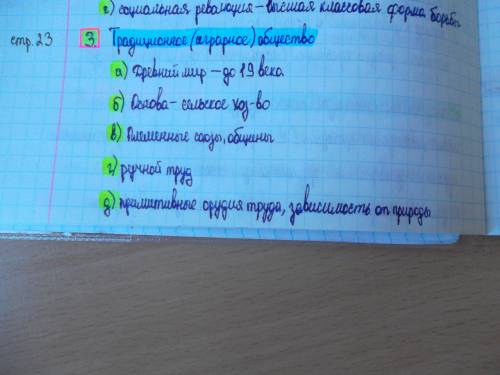 г) социальная революция – высшая классовая форма борьбы
стр. 23 3. Традиционное (аграрное) общество
а) Древний мир – до 19 века
б) Основа – сельское хоз-во
в) Племенные союзы, общины
г) ручной труд
д) примитивные орудия труда, зависимость от природы